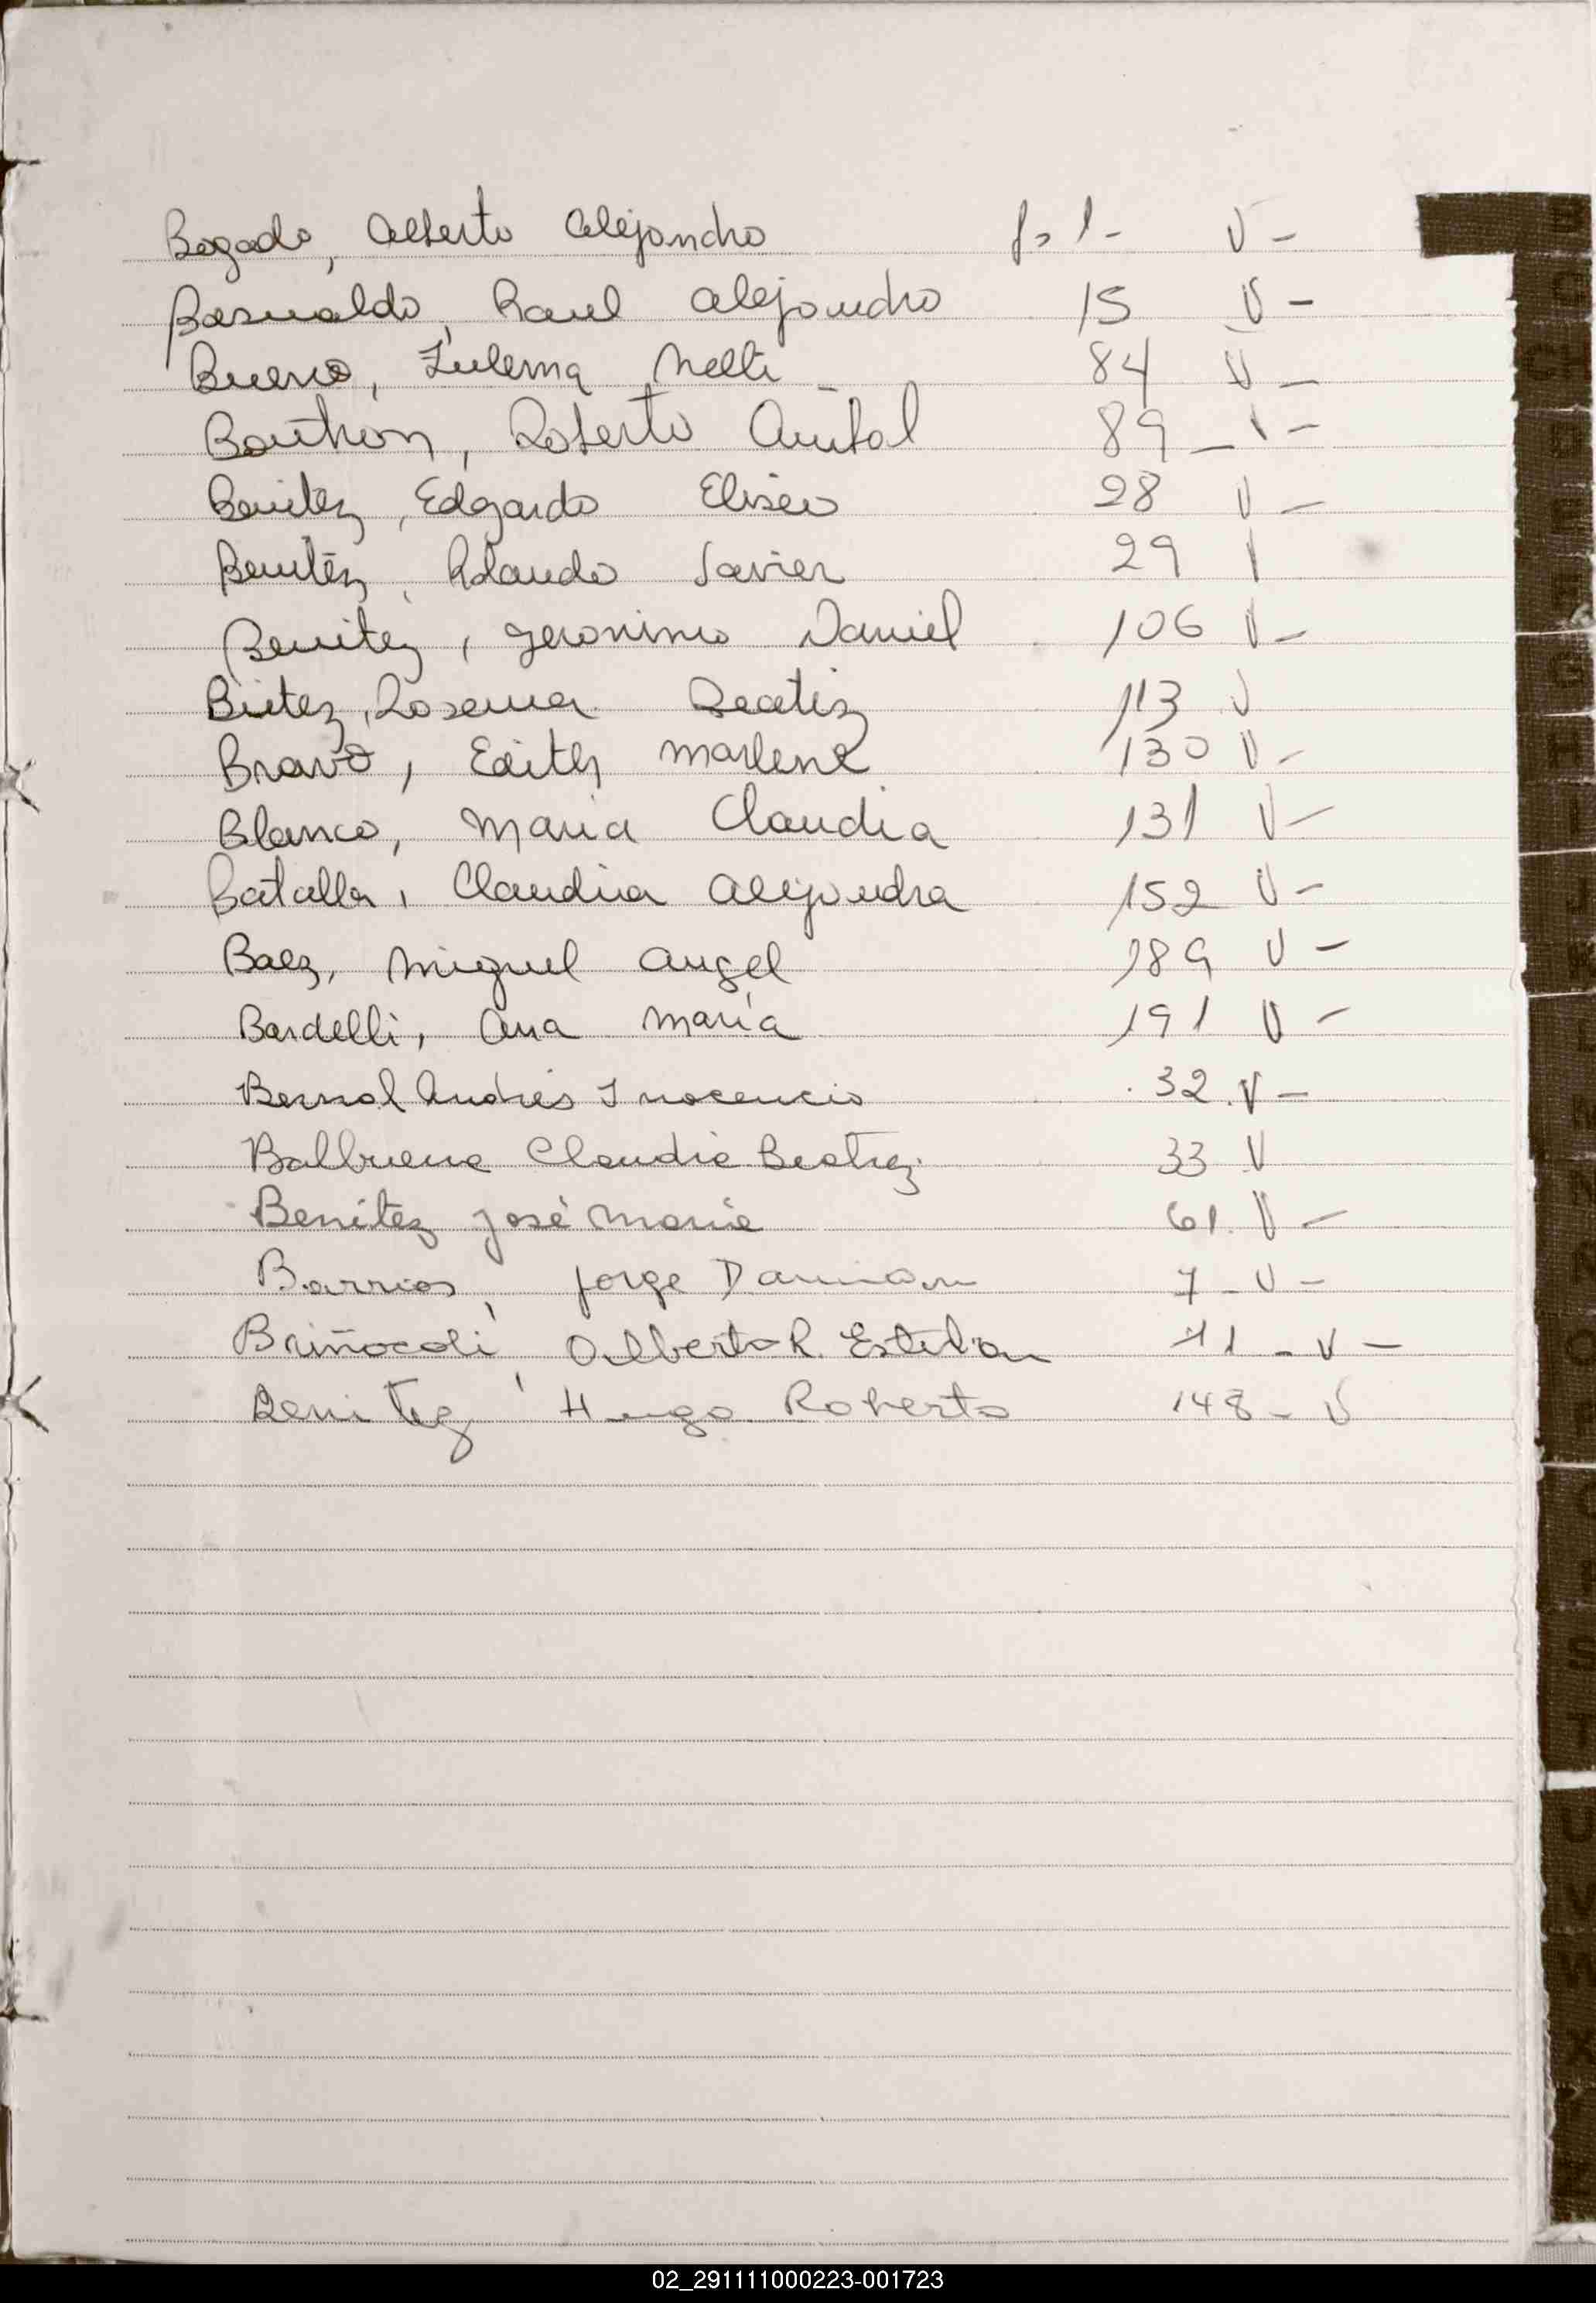 Bogado, Alberto Alejandro fo 1- V -
Basualdo, Raul Alejandro 15 V -
Bueno, Zulema Nelli - 84 V -
Bouthon, Roberto Anibal 89 - \ -
Benitez, Edgardo Eliseo 28 V -
Benitez, Rolando Javier 29 |
Benitez, Geronimo Daniel 106 V -
Beatriz 113 V
Bravo, Edith Marlene 130 V -
Blanco, Maria Claudia 131 V -
Batalla, Claudia Alejandra 152 V -
Baez, Miguel Angel 189 V -
Bardelli, Ana María 191 V -
Bernal Andrés Inocencio 32 V -
Balbuena Claudia Beatriz 33 V
Benítez José Maria 61. V -
Barrios, Jorge Damian 7 - V -
Briñocoli, Alberto R. Esteban 11 - V -
Benitez, Hugo Roberto 148 - V
02_291111000223-001723